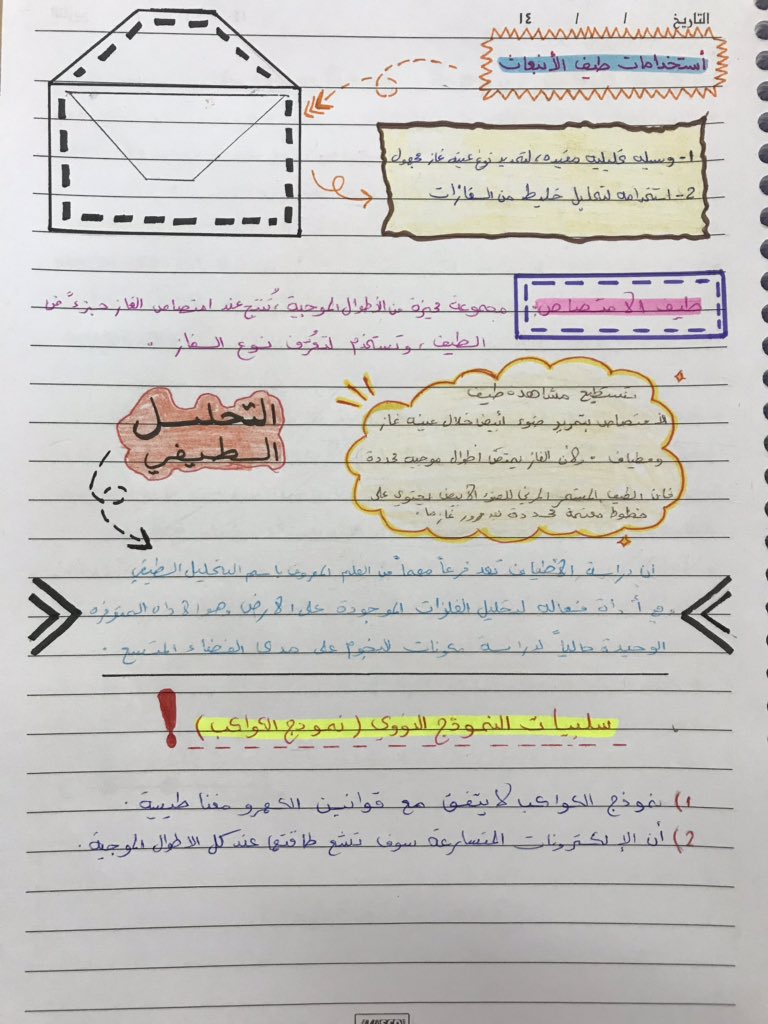 التاريخ / / ١٤
أستخدامات طيف الأنبعاث
1- وسيله تحليليه مفيده، لتحديد نوع عينه غاز مجهول
2- استخدامه لتحليل خليط من الغازات
طيف الامتصاص: مجموعة مميزة من الأطوال الموجية، تُنتج عند امتصاص الغاز جزءً من
الطيف، وتستخدم لتعرّف نوع الغاز.
نستطيع مشاهده طيف
الامتصاص بتمرير ضوء أبيض خلال عينه غاز
ومطياف. لأن الغاز يمتص اطوال موجيه محددة
فإن الطيف المستمر المرئي للضوء الأبيض يحتوي على
خطوط معتمة محددة بعد مرور
التحليل
الطيفي
أن دراسة الأطياف تعد فرعاً مهماً من العلم المعروف باسم التحليل الطيفي
وهي أداة فعاله لتحليل الفلزات الموجودة على الأرض وهو الأداه المتوفره
الوحيدة حالياً لدراسة مكونات النجوم على مدى الفضاء المتسع.
سلبيات النموذج النووي (نموذج الكواكب) !
1) نموذج الكواكب لا يتفق مع قوانين الكهرومغناطيسية.
2) أن الإلكترونات المتسارعة سوف تشع طاقتها عند كل الاطوال الموجية.